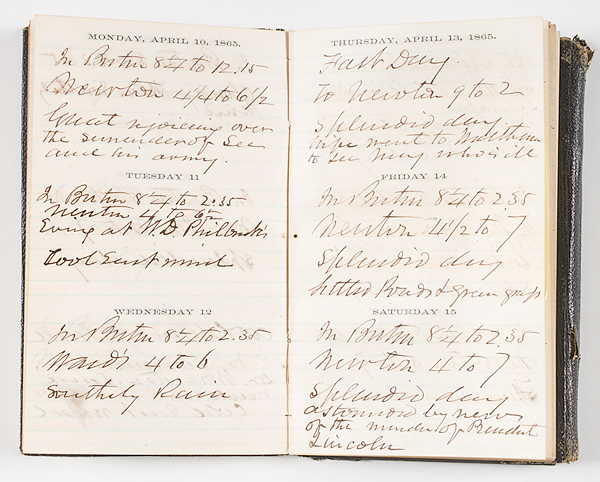 MONDAY, APRIL 10, 1865.
In Bostn 8 1/4 to 12.15
Newton 4 1/4 to 6 1/2
Great rejoicing over
the surrender of Lee
and his army.
TUESDAY 11
In Bostn 8 1/4 to 2.35
Newton 4 to 6
Eving at W.D. Philbrick's
Cool East wind
WEDNESDAY 12
In Bostn 8 1/4 to 2.35
Ward's 4 to 6
Southely Rain
THURSDAY, APRIL 13, 1865.
Fast Day.
to Newton 9 to 2
Splendid day
wife went to Waltham
to see May who is ill
FRIDAY 14
In Bostn 8 1/4 to 2.35
Newton 4 1/2 to 7
Splendid day
Settled Roads & Green grass
SATURDAY 15
In Bostn 8 1/4 to 2.35
Newton 4 to 7
Splendid day
astonished by news
of the murder of President
Lincoln